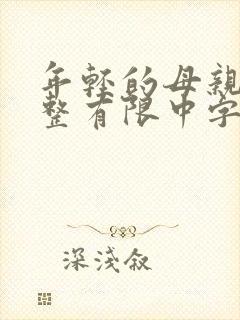 年轻的母親
整有限中字
深淺叙